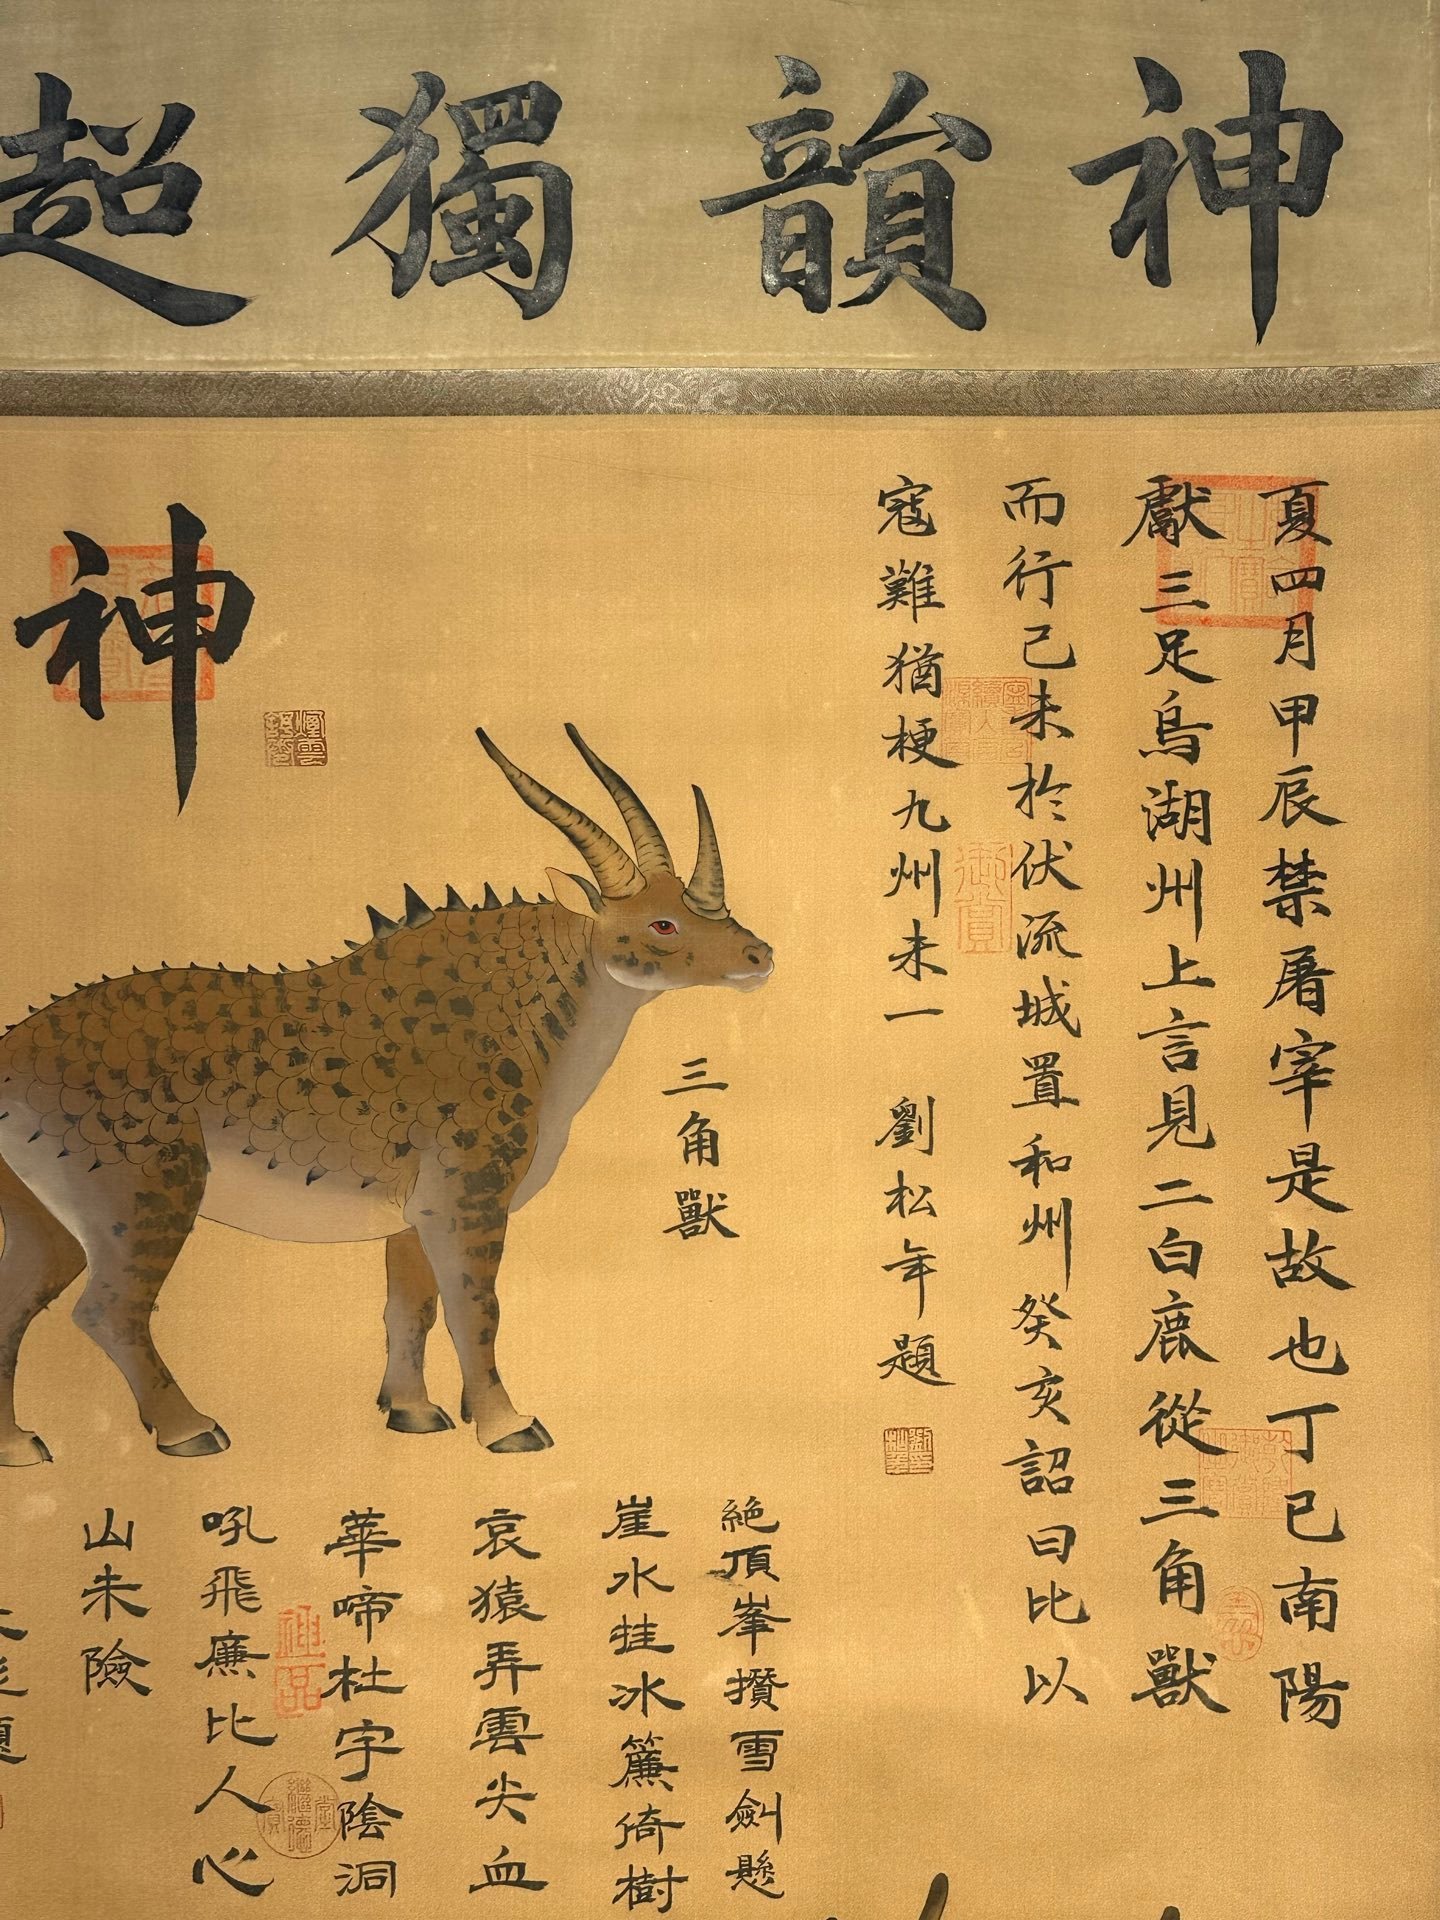 神韻獨超
夏四月甲辰禁屠宰是故也丁已南陽
獻三足烏湖州上言見二白鹿從三角獸
而行己未於伏流城置和州癸亥詔曰比以
寇難猶梗九州未一 劉松年題
三角獸
神
絶頂峯攢雪劍懸
崖水挂冰簾倚樹
哀猿弄雲尖血
華啼杜宇陰洞
吼飛廉比人心
山未險
御賞
神品